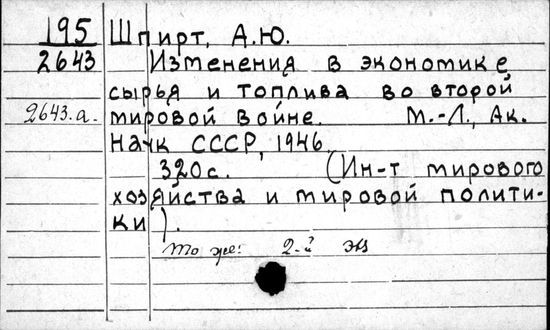 195 Шпирт, А.Ю.
2643 Изменения в экономике
сырья и топлива во второй
2643.а. мировой войне. М.-Л., Ак.
Наук СССР, 1946.
320с. (Ин-т мирового
хозяйства и мировой полити-
ки).
То же: 2-й экз